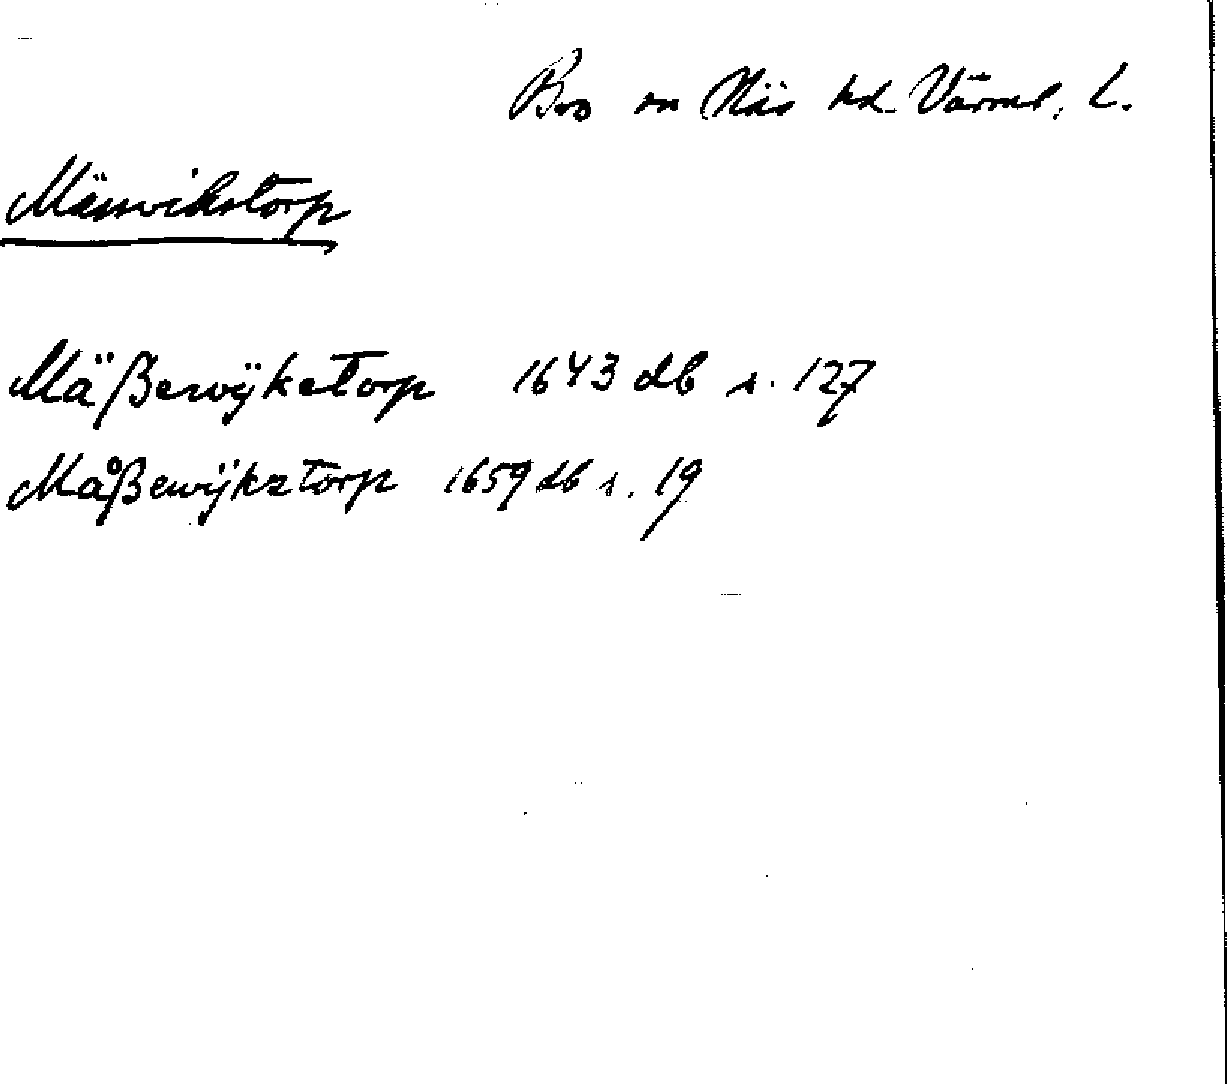 Bro sn Näs hd Värml. L.
Mässvikstorp
Mäßewÿketorp 1643 db s. 127
Måßewÿkztorp 1659 db s. 19